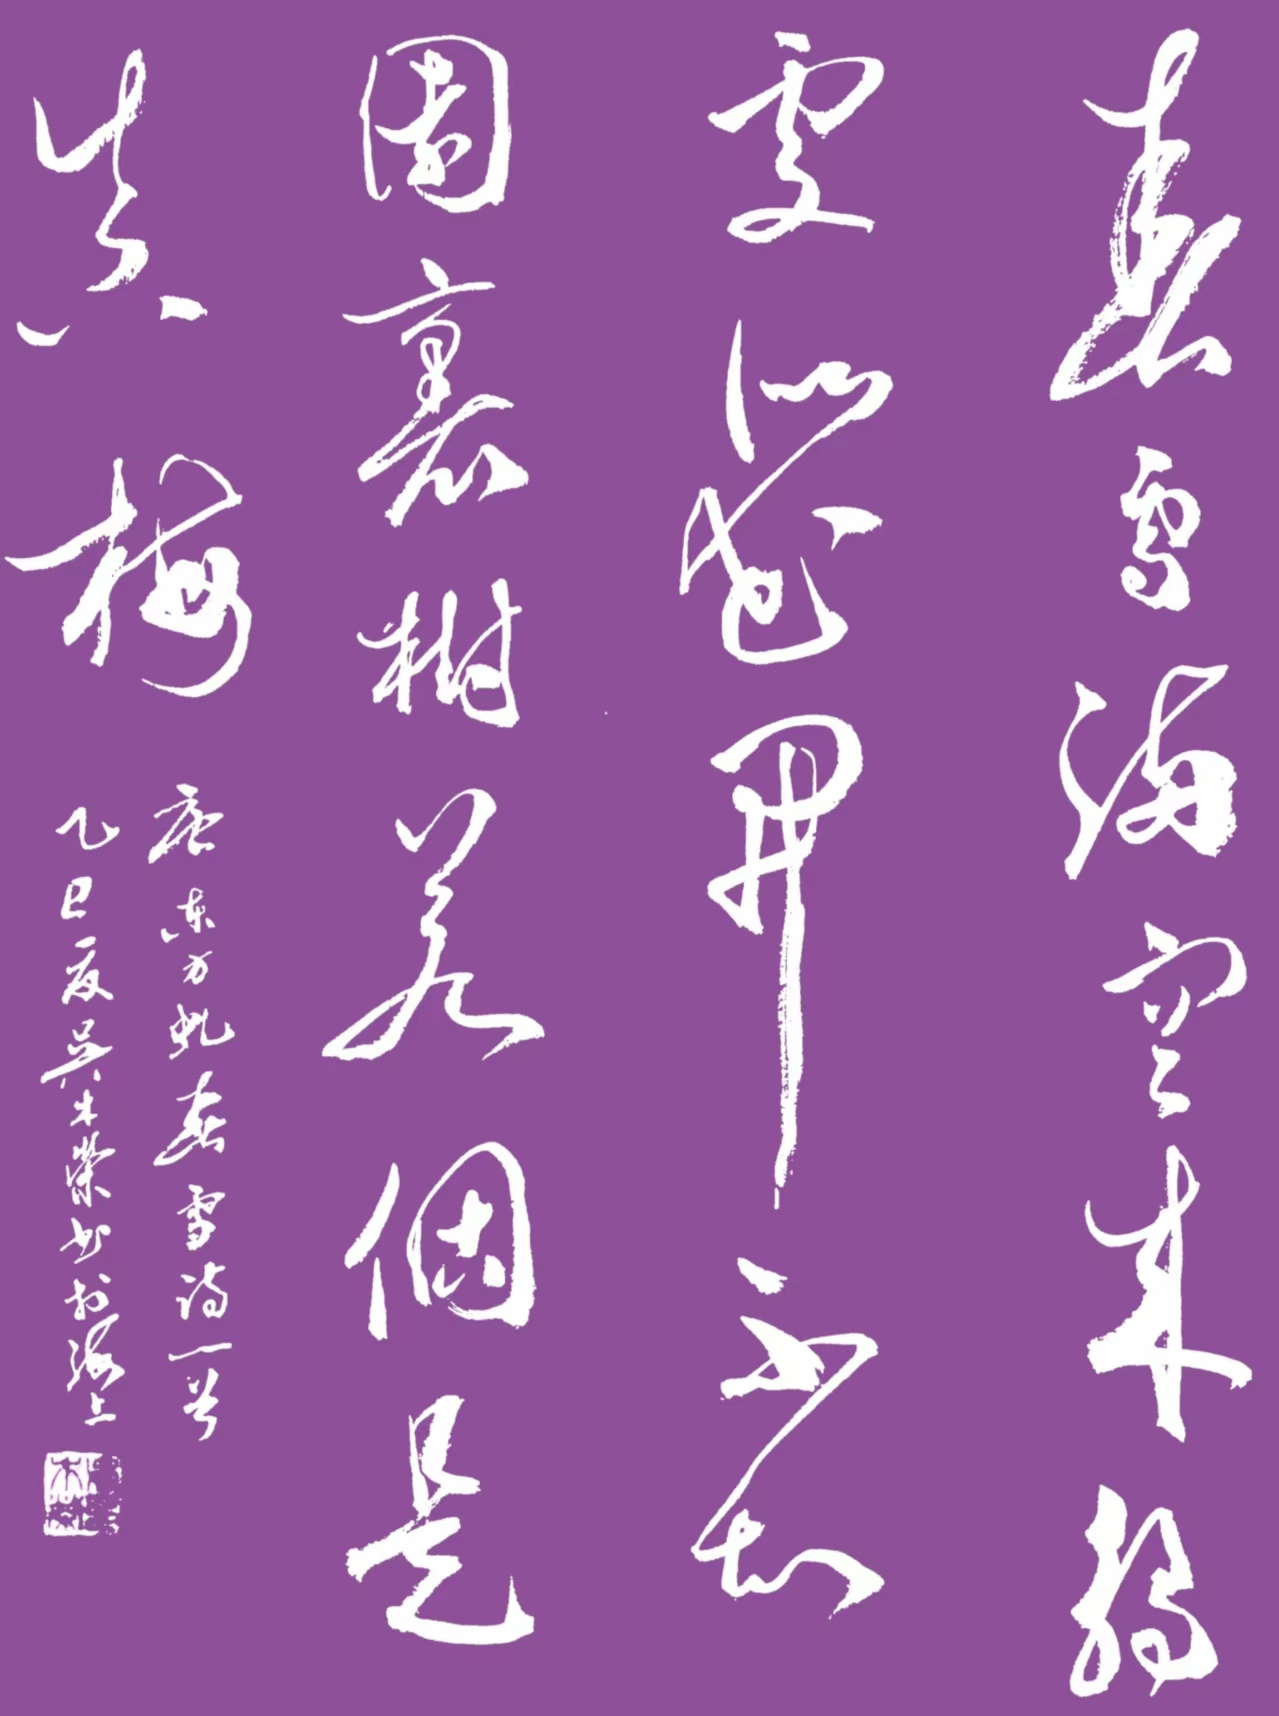 春雪满空来触
处似花開不知
園裏樹若個是
真梅
唐东方虬春雪诗一首
乙巳夏吴木荣书於海上